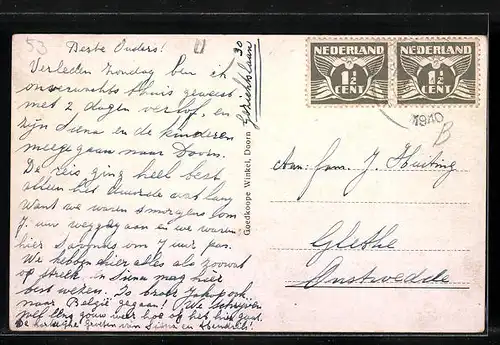 53
Beste Ouders!
Verleden Zondag ben ik
onverwachts thuis geweest
met 2 dagen verlof, en
zijn Siena en de kinderen
meegegaan naar Doorn.
De reis ging heel best
alleen het duurde wat lang
want we waren smorgens om
7 uur weggegaan en we waren
hier Savonds om 7 uur pas.
We hebben hier alles als zoowat
op streek, en Siena mag hier
best wezen. Is broer Jakob ook
naar België gegaan! (We schrijven
zelf nog gauw weer hoe op het hier gaat.
De hartelijke groeten van Siena en Hendrik!
30
Goedkoope Winkel, Doorn
NEDERLAND
1½
CENT
NEDERLAND
1½
CENT
1940
B
Aan: Fam. J. Huiting
Onstwedde